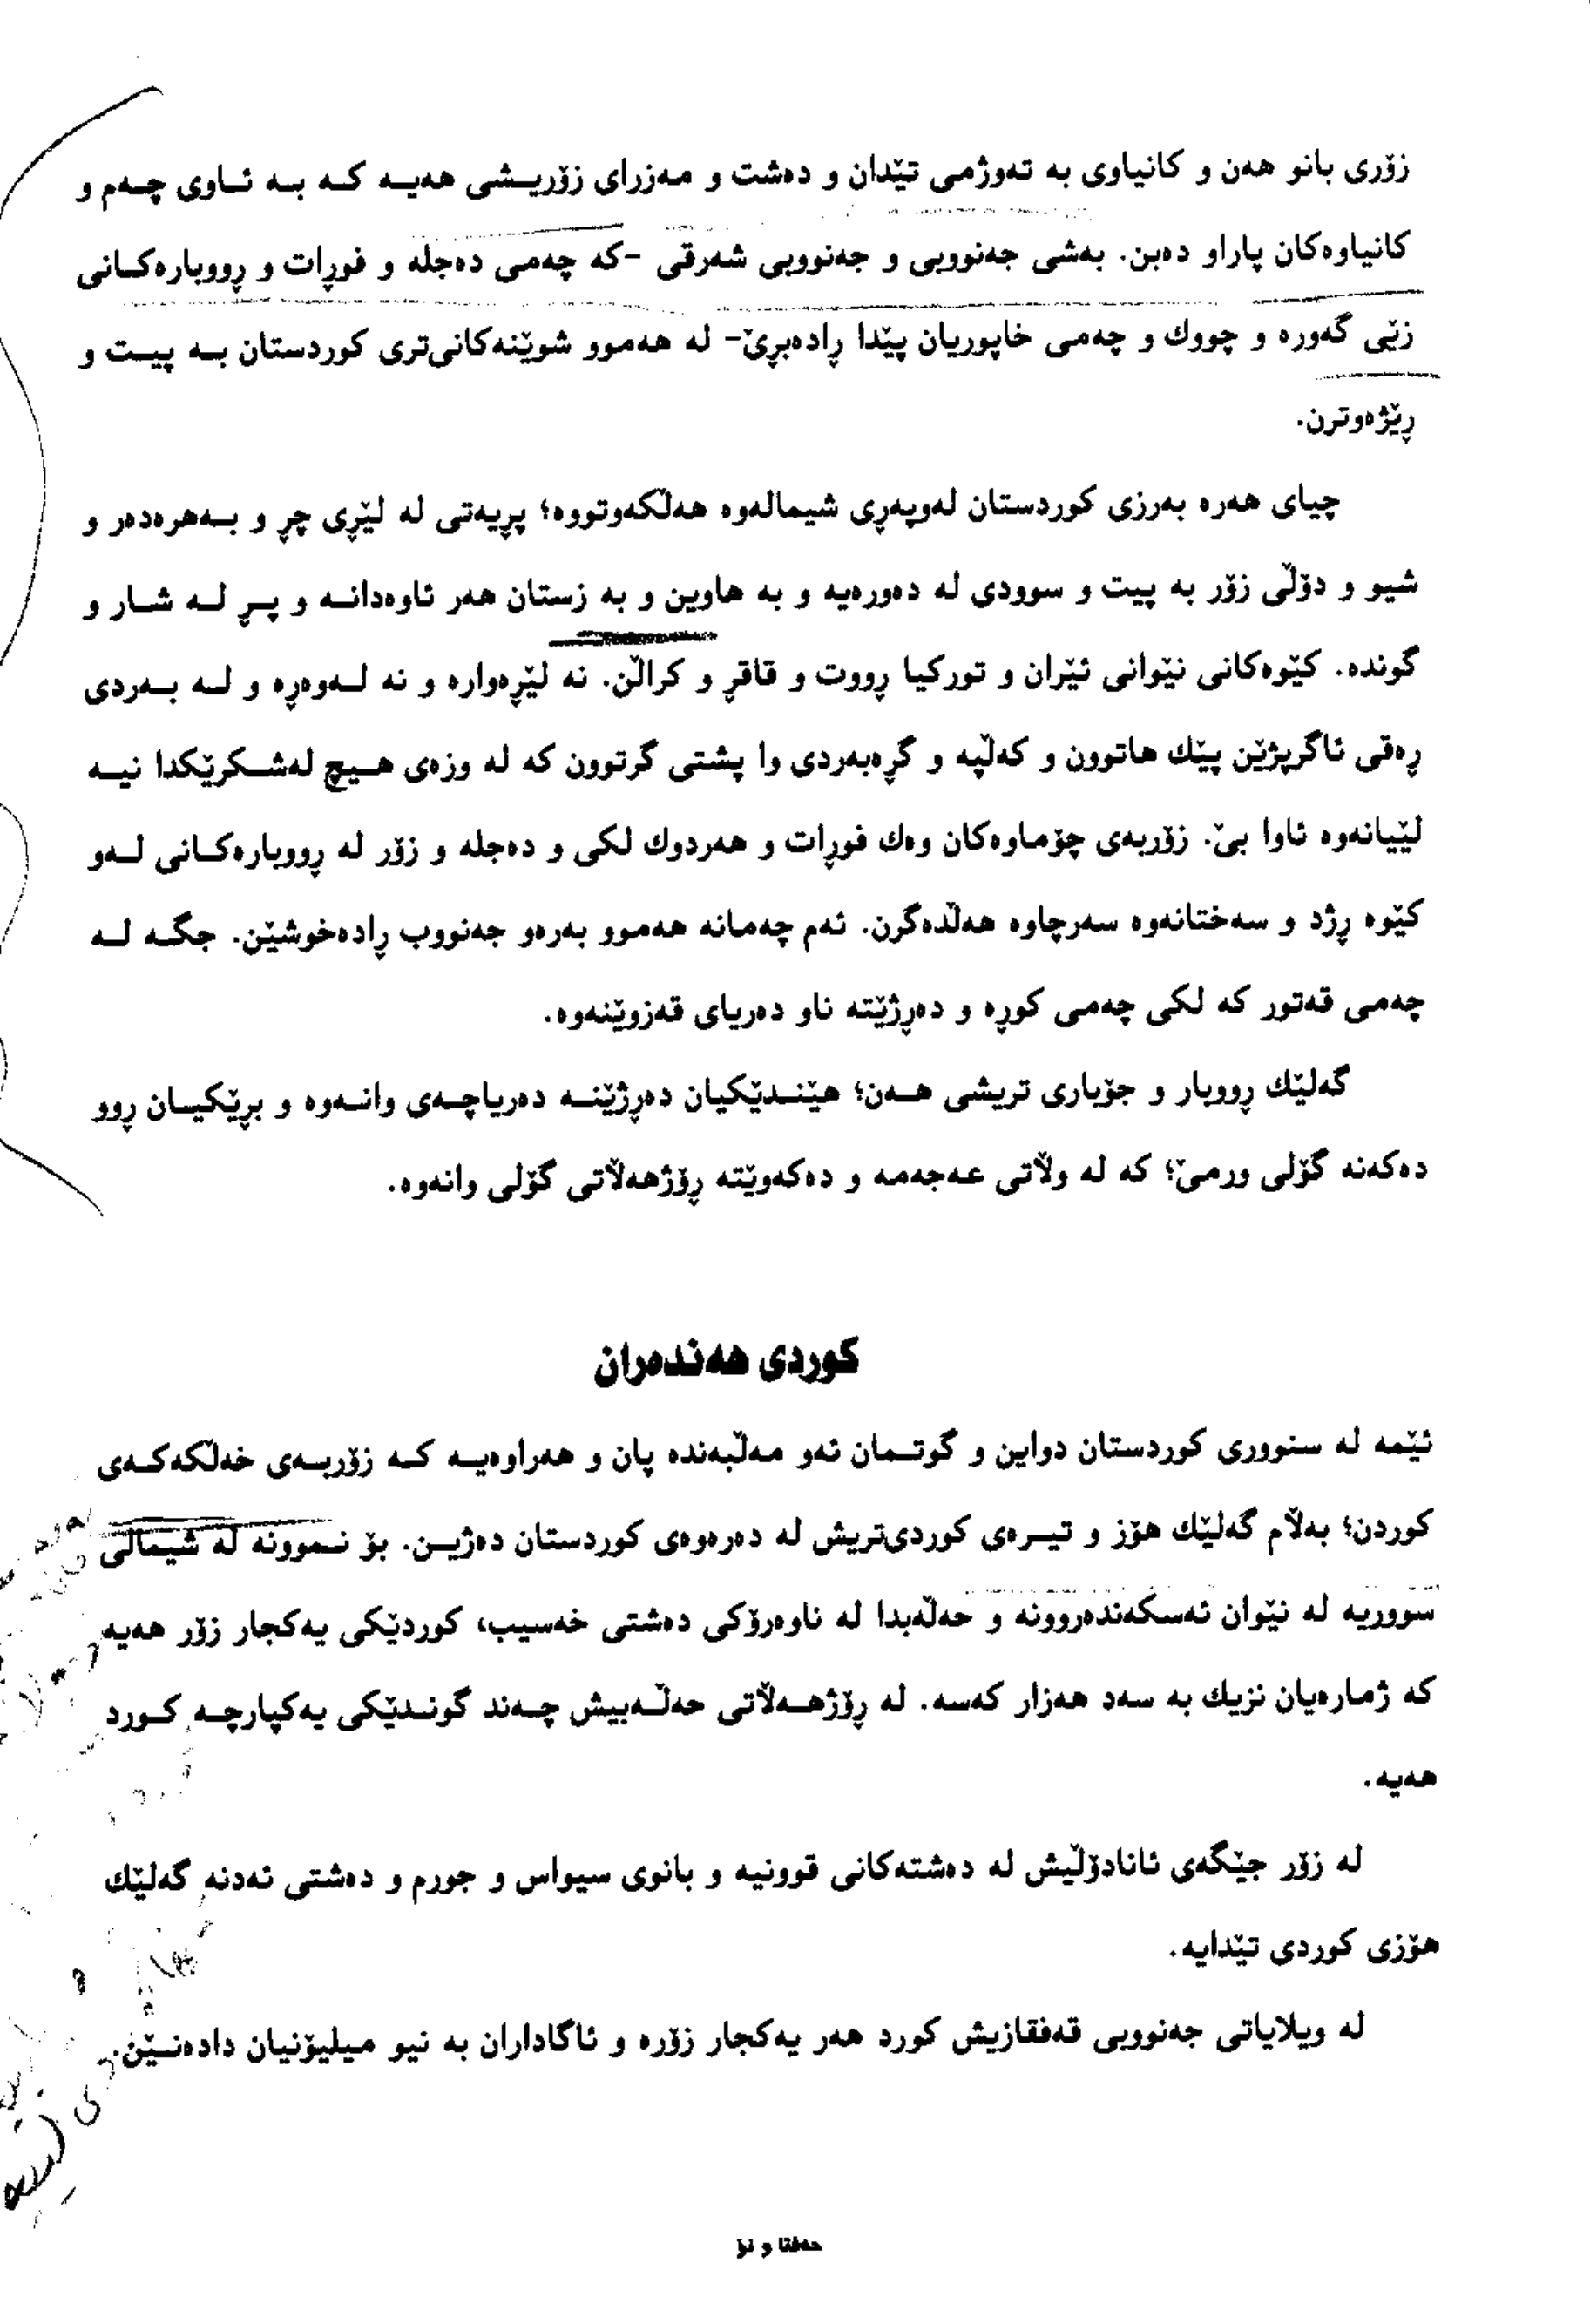 زۆری بانو هەن و کانیاوی بە تەوژمی تێدان و دەشت و مەزرای زۆریشی هەیە کە بە ئاوی چەم و
کانیاوەکان پاراو دەبن. بەشی جەنووبی و جەنووبی شەرقی -کە چەمی دەجلە و فوڕات و ڕووبارەکانی
زێی گەورە و چووك و چەمی خاپوریان پێدا ڕادەبرێ- لە هەموو شوێنەکانی‌تری کوردستان بە پیت و
ڕێژەوترن.
چیای هەرە بەرزی کوردستان لەوپەڕی شیمالەوە هەڵکەوتووە؛ پڕیەتی لە لێڕی چڕ و بەهرەدەر و
شیو و دۆڵی زۆر بە پیت و سوودی لە دەورەیە و بە هاوین و بە زستان هەر ئاوەدانە و پڕ لە شار و
گوندە. کێوەکانی نێوانی ئێران و تورکیا ڕووت و قاقڕ و کراڵن. نە لێڕەوارە و نە لەوەڕە و لە بەردی
ڕەقی ئاگرپژێن پێك هاتوون و کەڵپە و گڕەبەردی وا پشتی گرتوون کە لە وزەی هیچ لەشکرێکدا نیە
لێیانەوە ئاوا بێ. زۆربەی چۆماوەکان وەك فوڕات و هەردوك لکی و دەجلە و زۆر لە ڕووبارەکانی لەو
کێوە ڕژد و سەختانەوە سەرچاوە هەڵدەگرن. ئەم چەمانە هەموو بەرەو جەنووب ڕادەخوشێن. جگە لە
چەمی قەتور کە لکی چەمی کوڕە و دەڕژێتە ناو دەریای قەزوێنەوە.
گەلێك ڕووبار و جۆباری تریشی هەن؛ هێندێکیان دەڕژێنە دەریاچەی وانەوە و بڕێکیان ڕوو
دەکەنە گۆلی ورمێ؛ کە لە وڵاتی عەجەمە و دەکەوێتە ڕۆژهەڵاتی گۆلی وانەوە.
کوردی هەندەران
ئێمە لە سنووری کوردستان دواین و گوتمان ئەو مەڵبەندە پان و هەراوەیە کە زۆربەی خەڵکەکەی
کوردن؛ بەڵام گەلێك هۆز و تیرەی کوردی‌تریش لە دەرەوەی کوردستان دەژین. بۆ نموونە لە شیمالی
سووریە لە نێوان ئەسکەندەروونە و حەڵەبدا لە ناوەرۆکی دەشتی خەسیب، کوردێکی یەکجار زۆر هەیە
کە ژمارەیان نزیك بە سەد هەزار کەسە. لە ڕۆژهەڵاتی حەڵەبیش چەند گوندێکی یەکپارچە کورد
هەیە.
لە زۆر جێگەی ئانادۆڵیش لە دەشتەکانی قوونیە و بانوی سیواس و جورم و دەشتی ئەدنە گەلێك
هۆزی کوردی تێدایە.
لە ویلایاتی جەنووبی قەفقازیش کورد هەر یەکجار زۆرە و ئاگاداران بە نیو میلیۆنیان دادەنێن.
حەفتا و نۆ